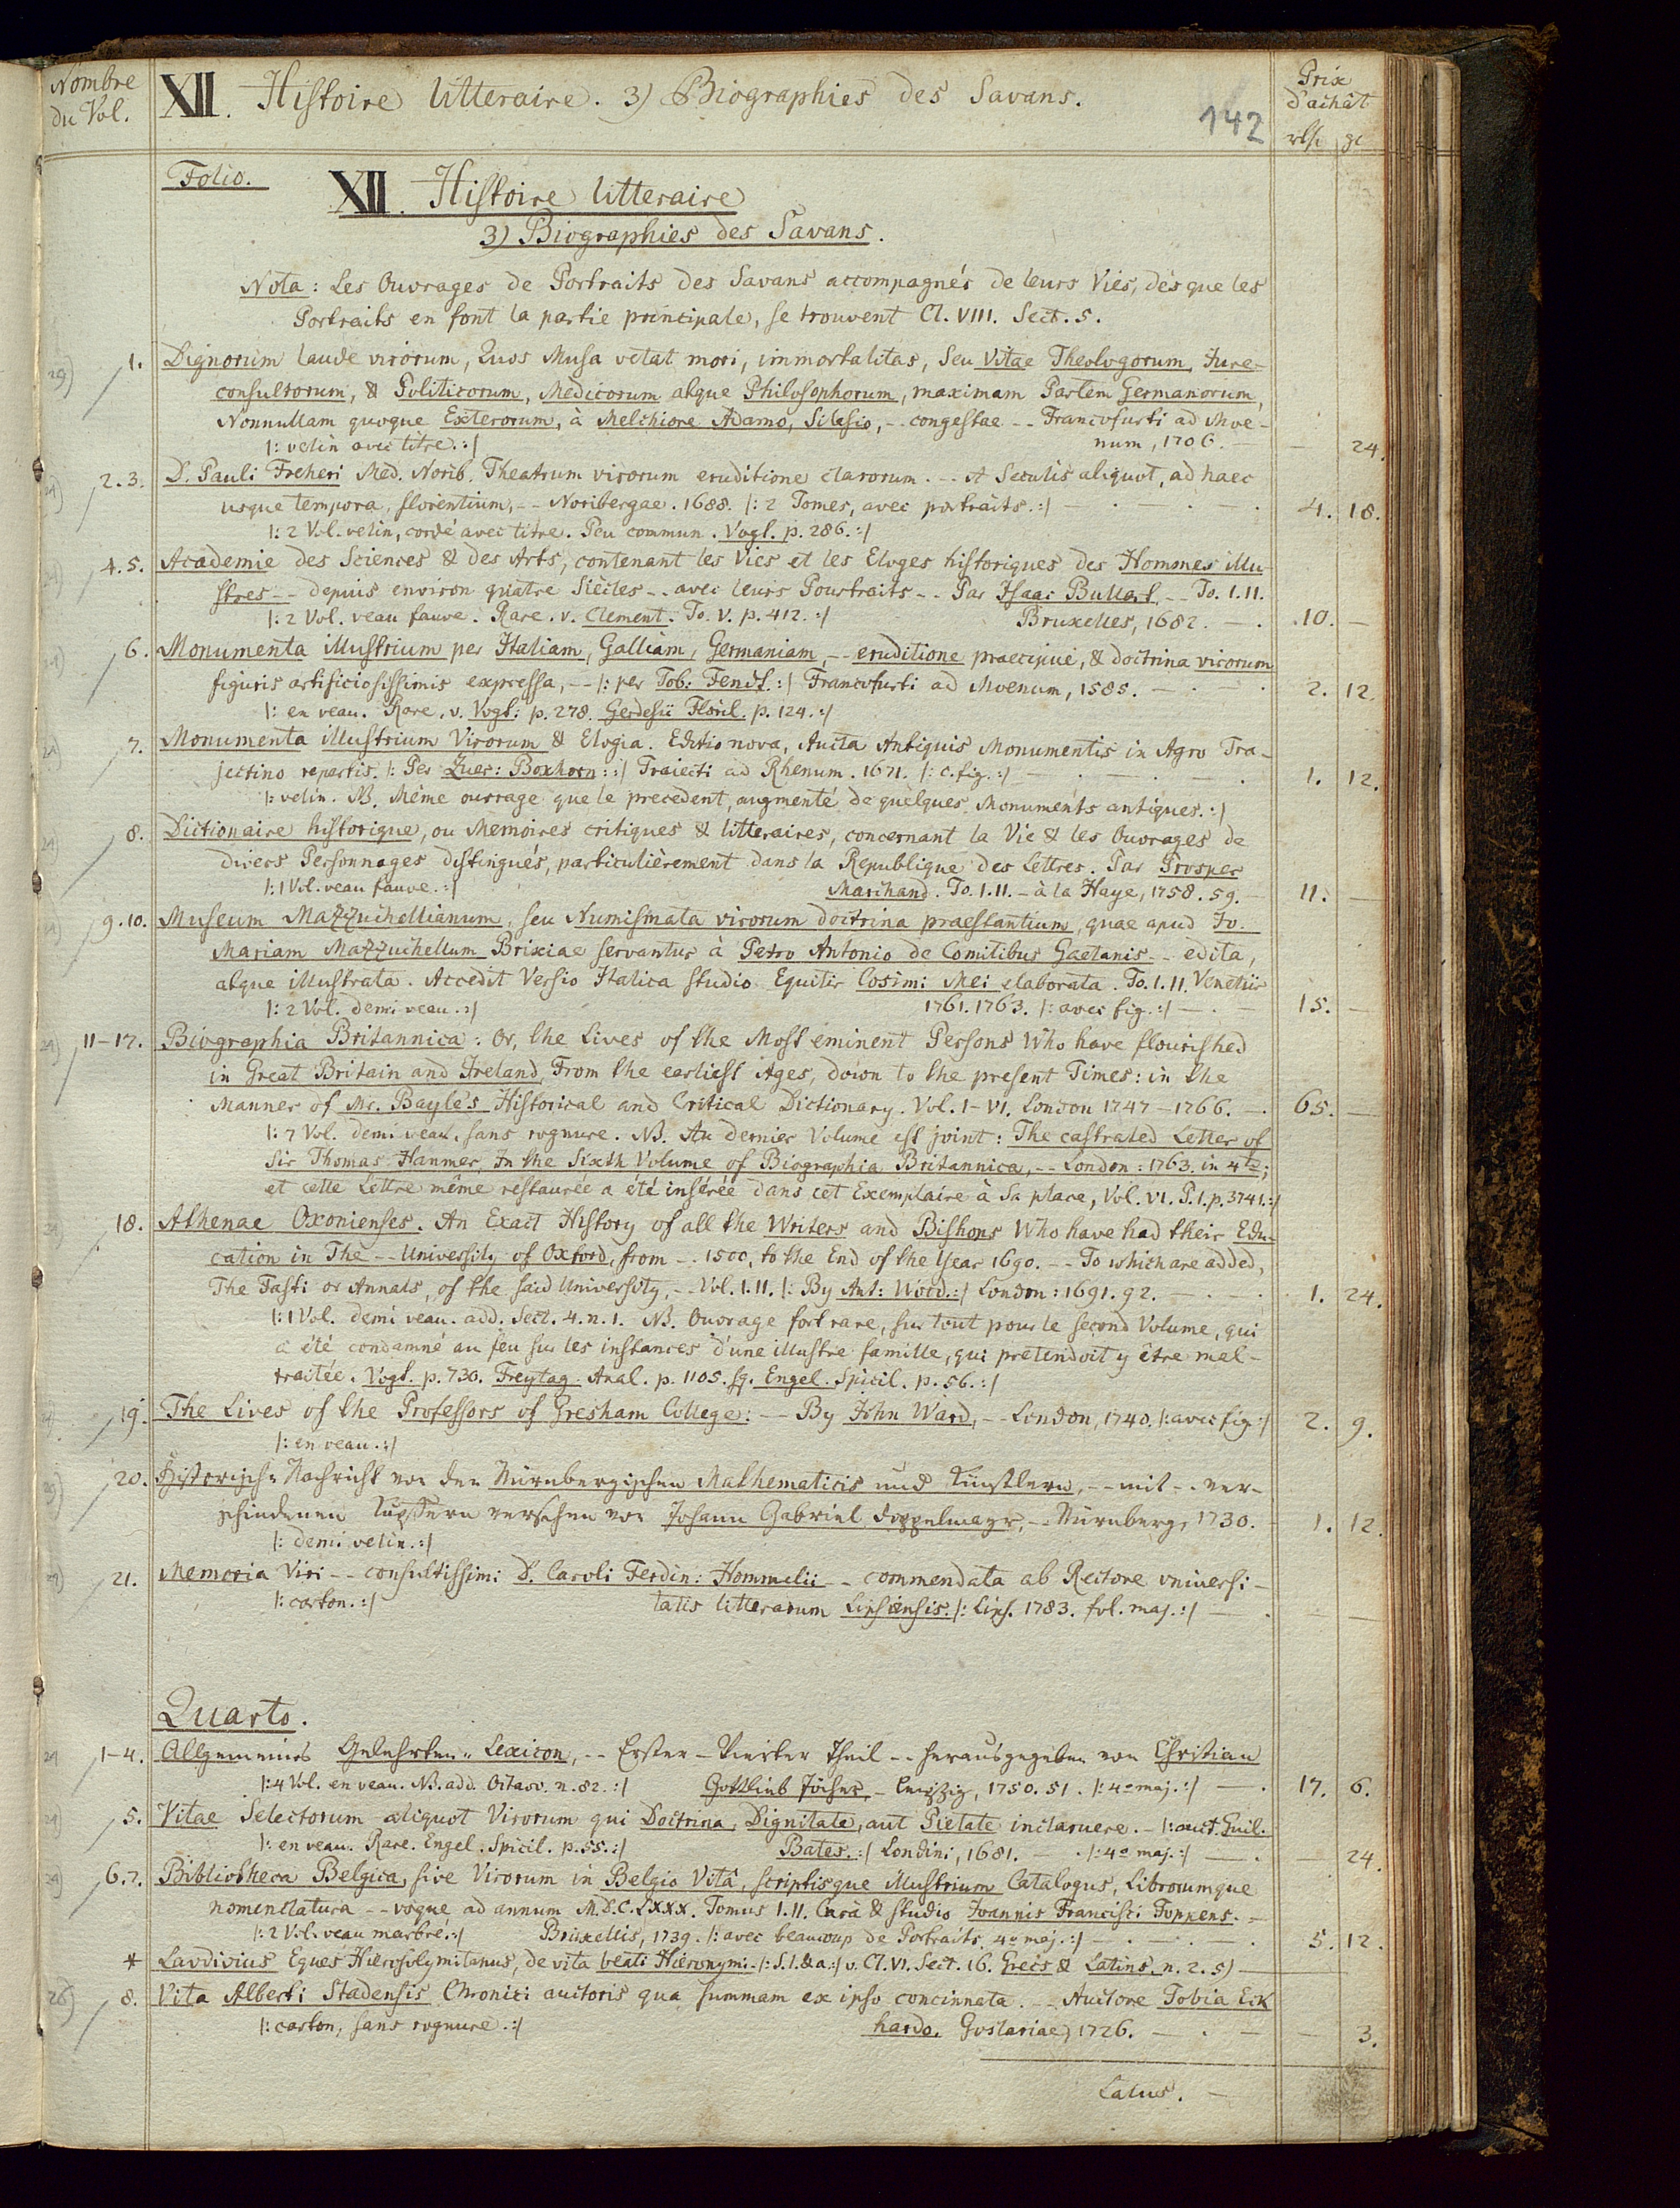 Nombre
du Vol.
XII. Histoire litteraire. 3) Biographies des Savans.
142
Prix
d'achât
rthl. gr
Folio.
XII. Histoire litteraire
3) Biographies des Savans.
Nota: Les Ouvrages de Portraits des Savans accompagnés de leurs Vies, dès que les
Portraits en font la partie principale, se trouvent Cl. VIII. Sect. 5.
1. Dignorum laude virorum, Quos Musa vetat mori, immortalitas, seu Vitae Theologorum, Jure-
consultorum, & Politicorum, Medicorum atque Philosophorum, maximam Partem Germanorum,
Nonnullam quoque Exterorum, à Melchiore Adamo, Silesio, -- congestae -- Francofurti ad Moe-
|: velin avec titre. :| num, 1706. — — 24.
2.3. D. Pauli Freheri Med. Norib. Theatrum virorum eruditione clarorum. -- A Seculis aliquot, ad haec
usque tempora, florentium, -- Noribergae. 1688. |: 2 Tomes, avec portraits. :| — 4. 18.
|: 2 Vol. velin, cordé avec titre. Peu commun. Vogt. p. 286. :|
4.5. Academie des Sciences & des Arts, contenant les Vies et les Eloges historiques des Hommes illu-
stres -- depuis environ quatre Siècles -- avec leurs Pourtraits -- Par Isaac Bullart -- To. I. II.
|: 2 Vol. veau fauve. Rare. v. Clement. To. V. p. 412. :| Bruxelles, 1682. — 10. —
6. Monumenta illustrium per Italiam, Galliam, Germaniam, -- eruditione praecipué, & doctrina virorum
figuris artificiosissimis expressa, -- |: per Tob: Fendt. :| Francofurti ad Moenum, 1585. — 2. 12
|: en veau. Rare. v. Vogt: p. 278. Gerdesii Floril. p. 124. :|
7. Monumenta illustrium Virorum & Elogia. Editio nova, Aucta Antiquis Monumentis in Agro Tra-
jectino repertis. |: Per Zuer: Boxhorn: :| Traiecti ad Rhenum. 1671. |: c. fig. :| — 1. 12.
|: velin. NB. Même ouvrage que le precedent, augmenté de quelques Monuments antiques. :|
8. Dictionaire historique, ou Memoires critiques & litteraires, concernant la Vie & les Ouvrages de
divers Personnages distingués, particulièrement dans la Republique des Lettres. Par Prosper
|: 1 Vol. veau fauve. :| Marchand. To. I. II. - à la Haye, 1758. 59. — 11. —
9.10. Museum Mazzuchellianum, seu Numismata virorum doctrina praestantium, quae apud Jo.
Mariam Mazzuchellum Brixiae servantur à Petro Antonio de Comitibus Gaetanis -- edita,
atque illustrata. Accedit Versio Italica studio Equitis Cosimi Mei elaborata. To. I. II. Venetiis
|: 2 Vol. demi veau. :| 1761. 1763. |: avec fig. :| — 15. —
11-17. Biographia Britannica: Or, the Lives of the Most eminent Persons Who have flourished
in Great Britain and Ireland, From the earliest Ages, down to the present Times: in the
Manner of Mr. Bayle's Historical and Critical Dictionary. Vol. I-VI. London 1747-1766. — 65. —
|: 7 Vol. demi veau, sans rognure. NB. Au dernier Volume est joint: The castrated Letter of
Sir Thomas Hanmer, In the Sixth Volume of Biographia Britannica, -- London: 1763. in 4to;
et cette Lettre même restaurée a été insérée dans cet Exemplaire à sa place, Vol. VI. P. I. p. 3741. :|
18. Athenae Oxonienses. An Exact History of all the Writers and Bishops Who have had their Edu-
cation in The -- University of Oxford, from -- 1500, to the End of the Year 1690. -- To which are added,
The Fasti or Annals, of the said University, -- Vol. I. II. |: By Ant: Wood. :| London: 1691. 92. — 1. 24.
|: 1 Vol. demi veau. add. Sect. 4. n. 1. NB. Ouvrage fort rare, sur tout pour le second Volume, qui
a été condamné au feu sur les instances d'une illustre famille, qui prétendoit y être mal-
traitée. Vogt. p. 730. Freytag. Anal. p. 1105. sq. Engel. Spicil. p. 56. :|
19. The Lives of the Professors of Gresham College: -- By John Ward, -- London, 1740. |: avec fig :| 2. 9.
|: en veau. :|
20. Historische Nachricht von den Nürnbergischen Mathematicis und Künstlern, -- mit -- ver-
schiedenen Kupffern versehen von Johann Gabriel Doppelmayr, -- Nürnberg, 1730. — 1. 12.
|: demi velin. :|
21. Memoria Viri -- consultissimi D. Caroli Ferdin: Hommelii -- commendata ab Rectore vniuersi-
|: carton. :| tatis litterarum Lipsiensis. |: Lips. 1783. fol. maj. :| —
Quarto.
1-4. Allgemeines Gelehrten-Lexicon, -- Erster - Vierter Theil -- herausgegeben von Christian
|: 4 Vol. en veau. NB. add. Octavo. n. 82. :| Gottlieb Jöcher, - Leipzig, 1750. 51. |: 4º maj. :| — 17. 6.
5. Vitae Selectorum aliquot Virorum qui Doctrina, Dignitate, aut Pietate inclaruere. - |: auct. Guil.
|: en veau. Rare. Engel. Spicil. p. 55. :| Bates. :| Londini, 1681. — |: 4º maj. :| — — 24.
6.7. Bibliotheca Belgica, sive Virorum in Belgio Vitâ, scriptisque illustrium Catalogus, Librorumque
nomenclatura -- vsque ad annum M.D.C.LXXX. Tomus I. II. Curâ & studio Joannis Francisci Foppens. -
|: 2 Vol. veau marbré. :| Bruxellis, 1739. |: avec beaucoup de Portraits. 4º maj. :| — 5. 12.
* Lavdivius Eques Hierosolymitanus, de vita beati Hieronymi. |: S. l. & a. :| v. Cl. VI. Sect. 16. Grecs & Latins. n. 2. 5) —
8. Vita Alberti Stadensis Chronici auctoris qua summam ex ipso concinnata. -- Auctore Tobia Eck
|: carton, sans rognure. :| hardo. Goslariae, 1726. — — 3.
Latus. —